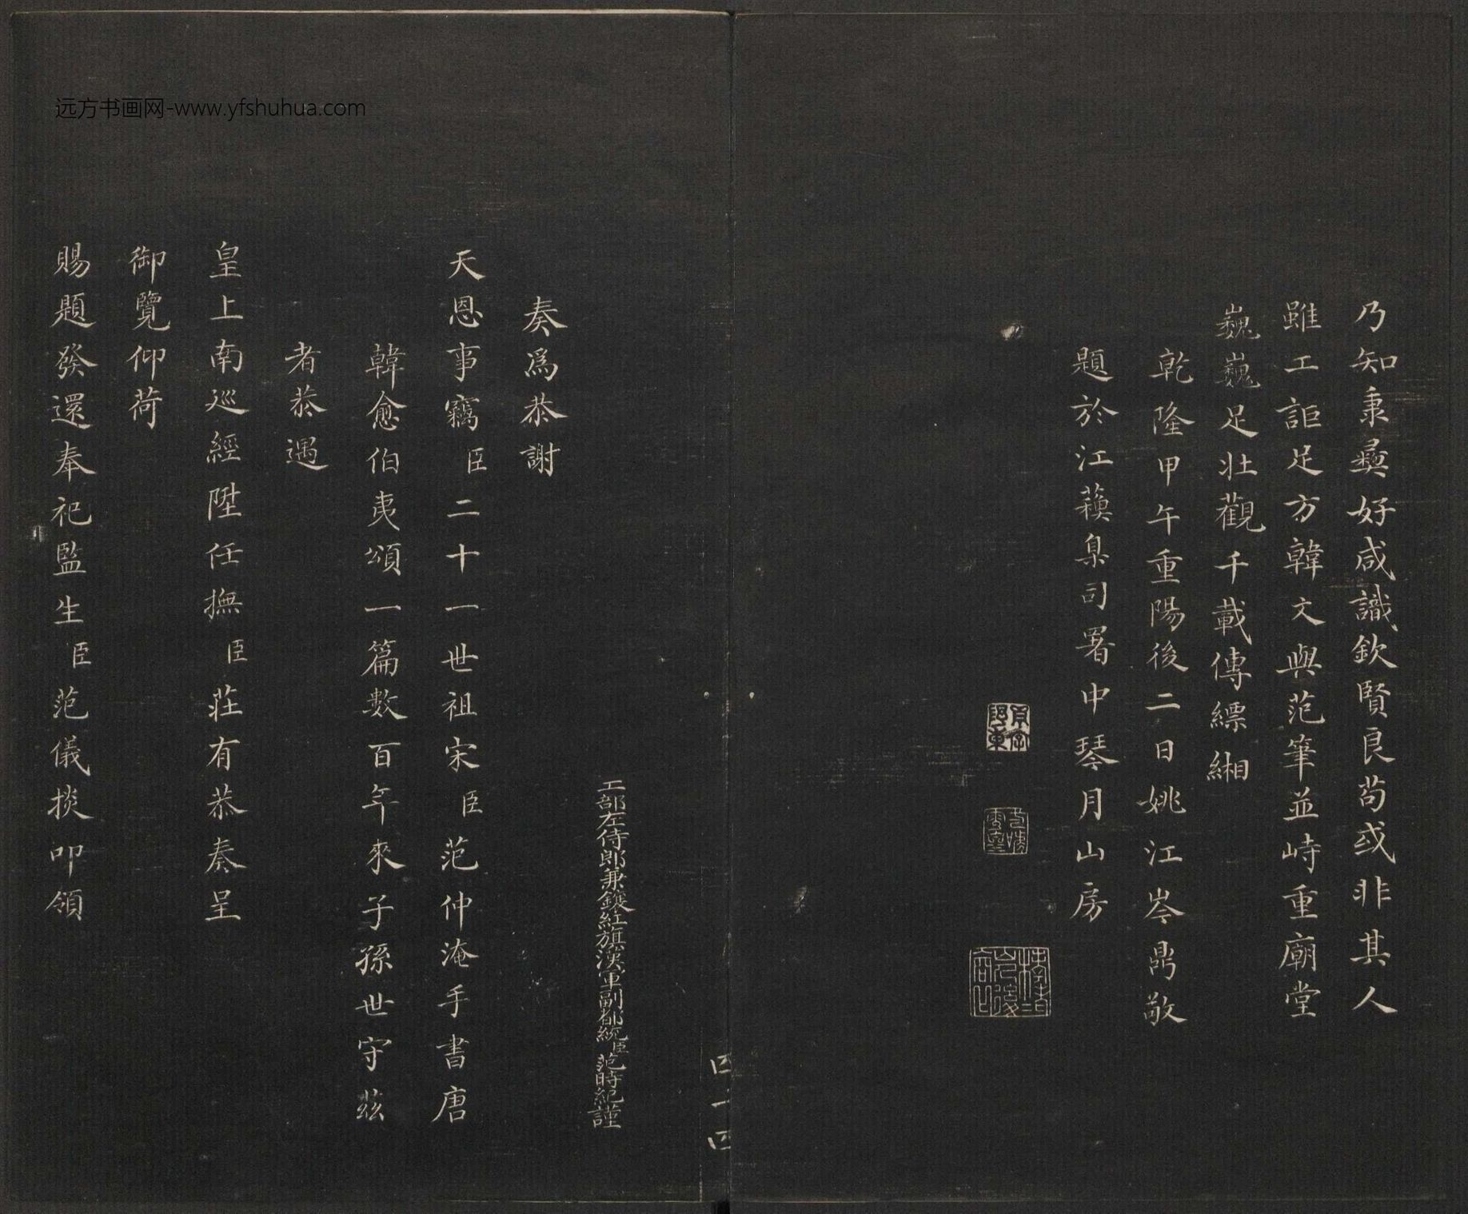 乃知秉彝好咸識欽賢良苟或非其人
雖工詎足方韓文與范筆並峙重廟堂
巍巍足壯觀千載傳縹緗
乾隆甲午重陽後二日姚江岑鼎敬
題於江蘓臬司署中琴月山房
四十四
工部左侍郎兼鑲紅旗漢軍副都統臣范時紀謹
奏為恭謝
天恩事竊臣二十一世祖宋臣范仲淹手書唐
韓愈伯夷頌一篇數百年來子孫世守茲
者恭遇
皇上南巡經陞任撫臣莊有恭奏呈
御覽仰荷
賜題發還奉祀監生臣范儀掞叩領
远方书画网-www.yfshuhua.com